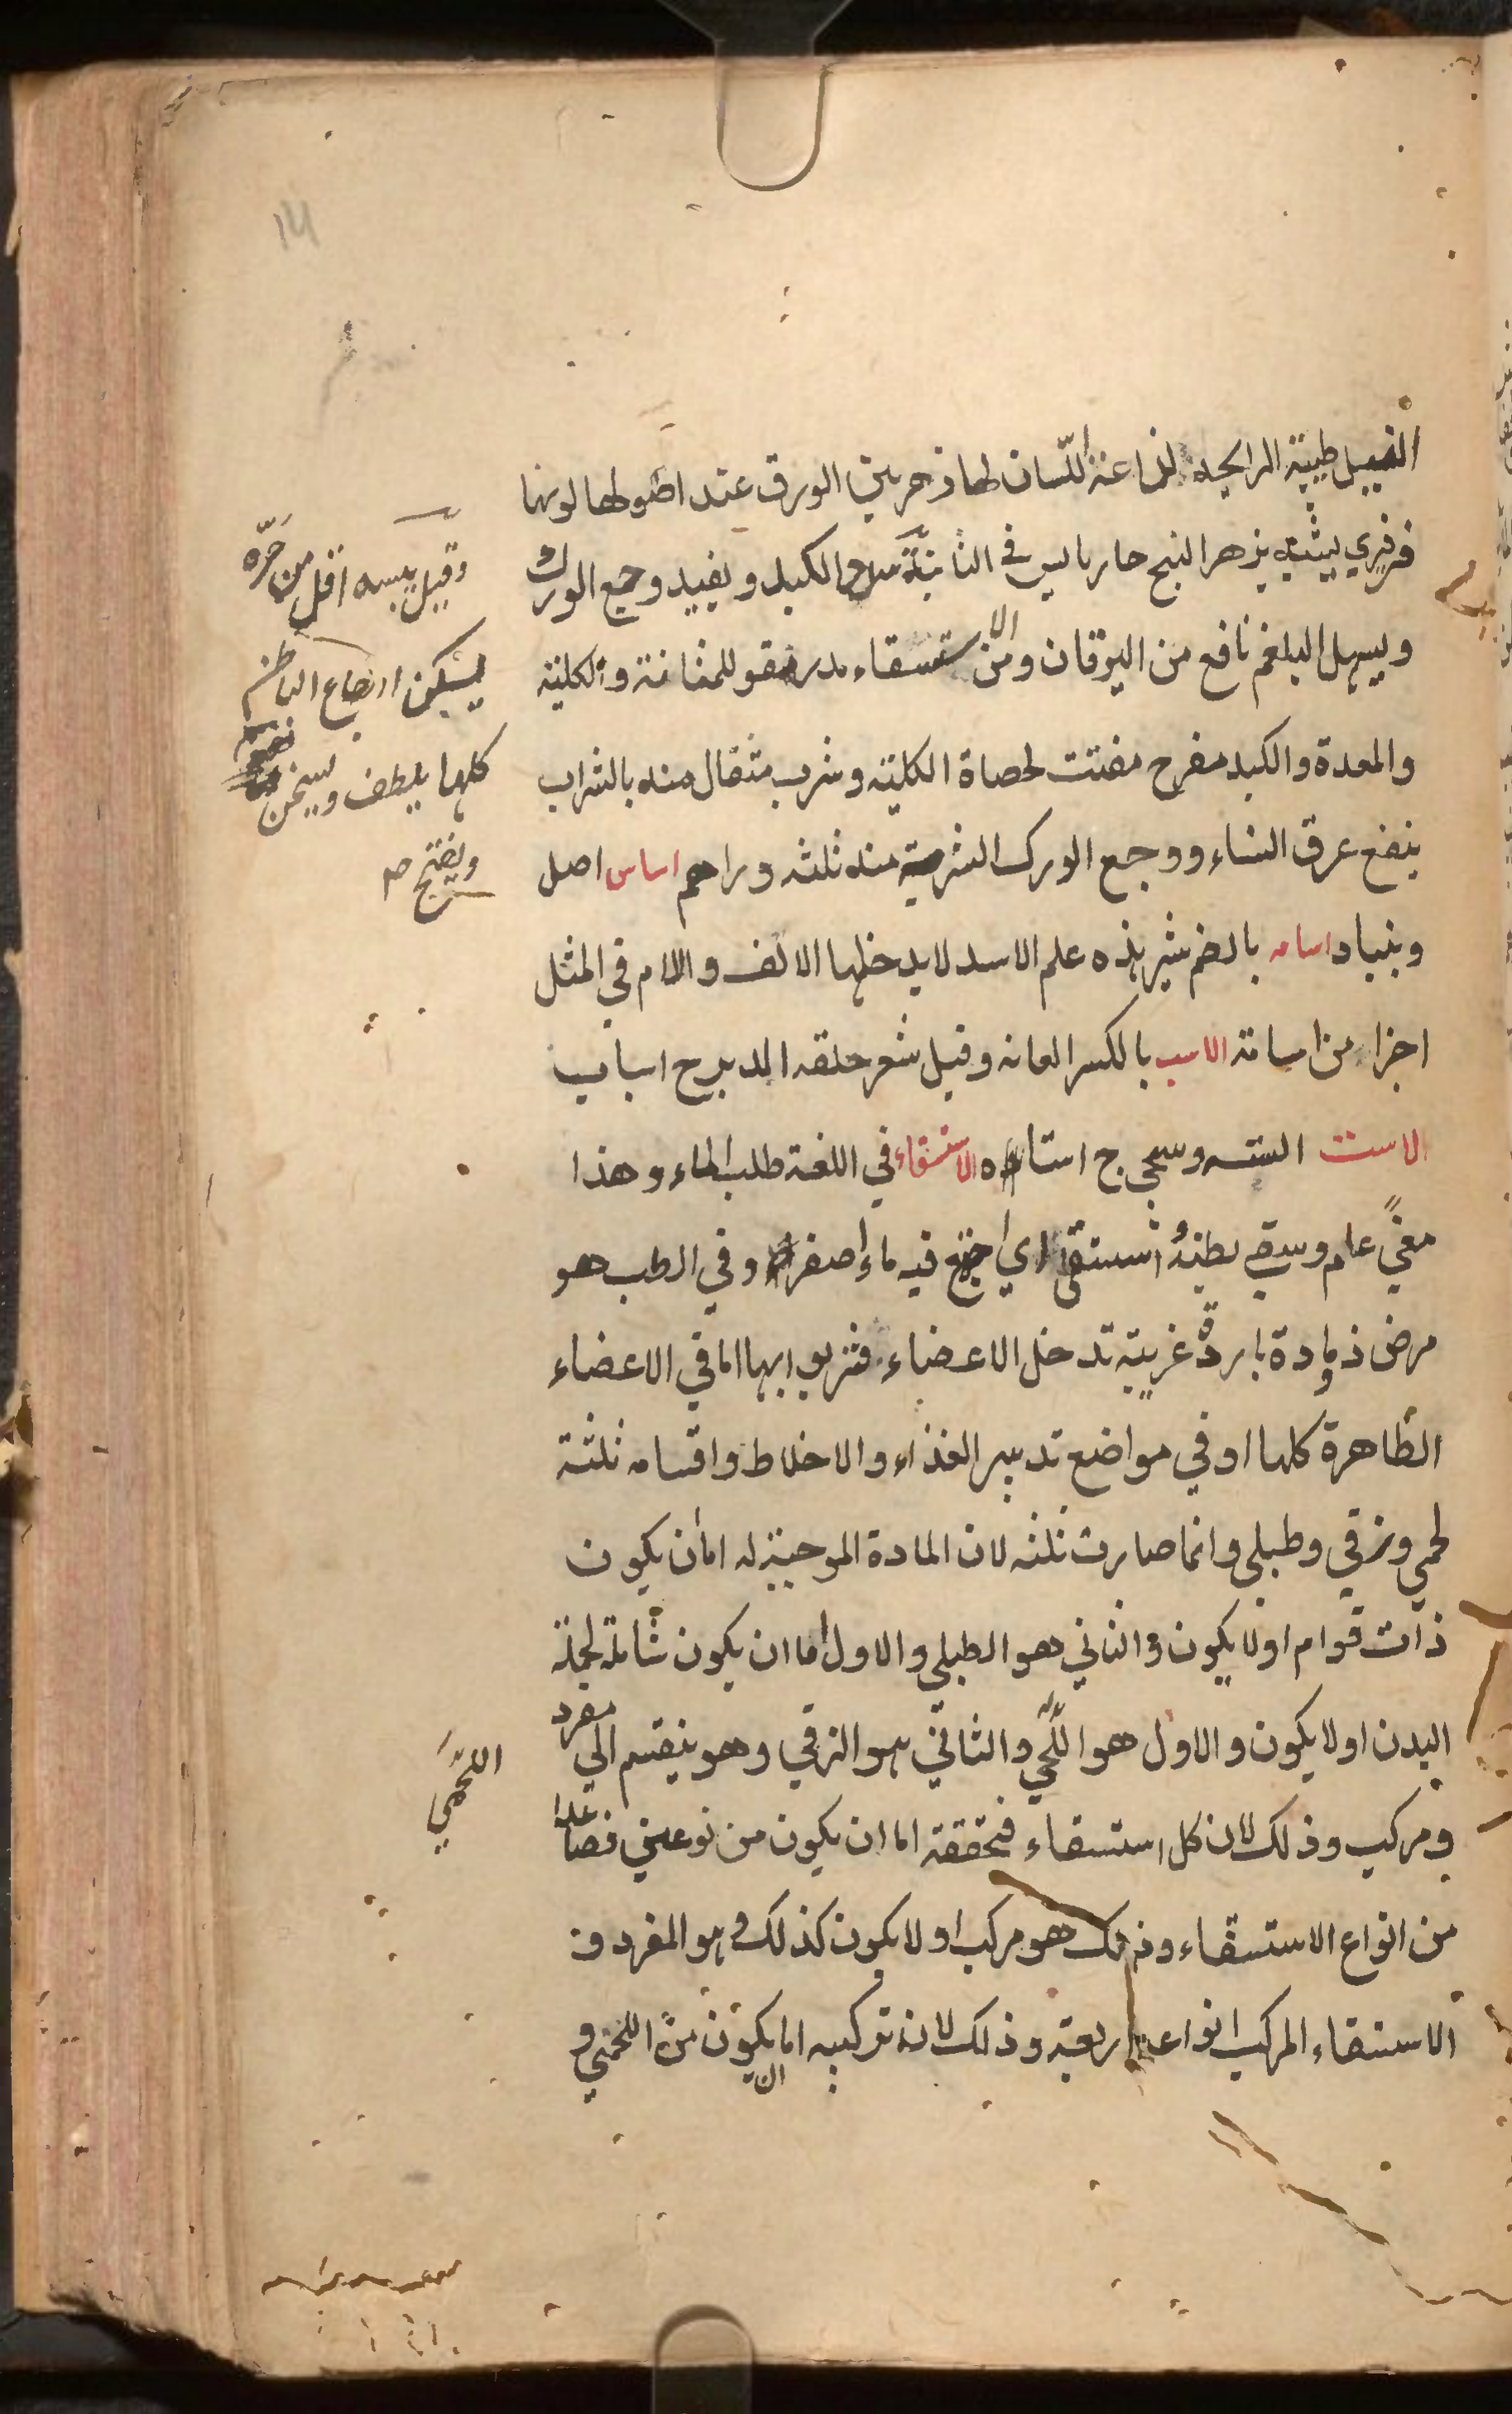 الفيل طيبة الرايحة لذاعة اللسان لها زهر بين الورق عند اصولها لونها
فرفيري يشبه بزهر البنج حار يابس في الثانية الكبد ويفيد وجع الورك
ويسهل البلغم نافع من اليرقان ومن الاستسقاء مدر مقو للمثانة والكلية
والمعدة والكبد مفرح مفتت لحصاة الكلية وشرب مثقال منه بالشراب
ينفع عرق النساء ووجع الورك الشربة منه ثلثه دراهم اساس اصل
وبنياد اسامه بالضم شير بذه علم الاسد لا يدخلها الالف واللام في المثل
اجزا من اسامة الاسب بالكسر العانه وقيل شعر حلقه الدبر ج اساب
الاست السته وسجي ج استاه الاستسقاء في اللغة طلب الماء وهذا
معنًي عام وسقي بطنهُ استسقى اي اجتمع فيه ماء اصفر وفي الطب هو
مرض ذو مادة باردة غريبة تدخل الاعضاء فتربو بها اما في الاعضاء
الظاهرة كلها او في مواضع تدبير الغذاء والاخلاط واقسامه ثلثة
لحمي وزقي وطبلي وانما صارت ثلثه لان المادة الموجبة له اما ان يكون
ذات قوام اولا يكون والثاني هو الطبلي والاول اما ان يكون شاملة لجملة
البدن اولا يكون والاول هو اللّحمي والثاني هو الزقي وهو ينقسم الي مفرد
ومركب وذلك لان كل استسقاء فتحققة اما ان يكون من نوعين فصاعدا
من انواع الاستسقاء وذلك هو مركب او لا يكون كذلك وهو المفرد و
الاستسقاء المركب انواعه اربعة وذلك لان تركيبه اما ان يكون من اللحمي و
وقيل يبسه اقل من حَرّه
يسكن اوجاع الباطن
كلها يلطف ويسخن
ويفتح صح
اللحَمي